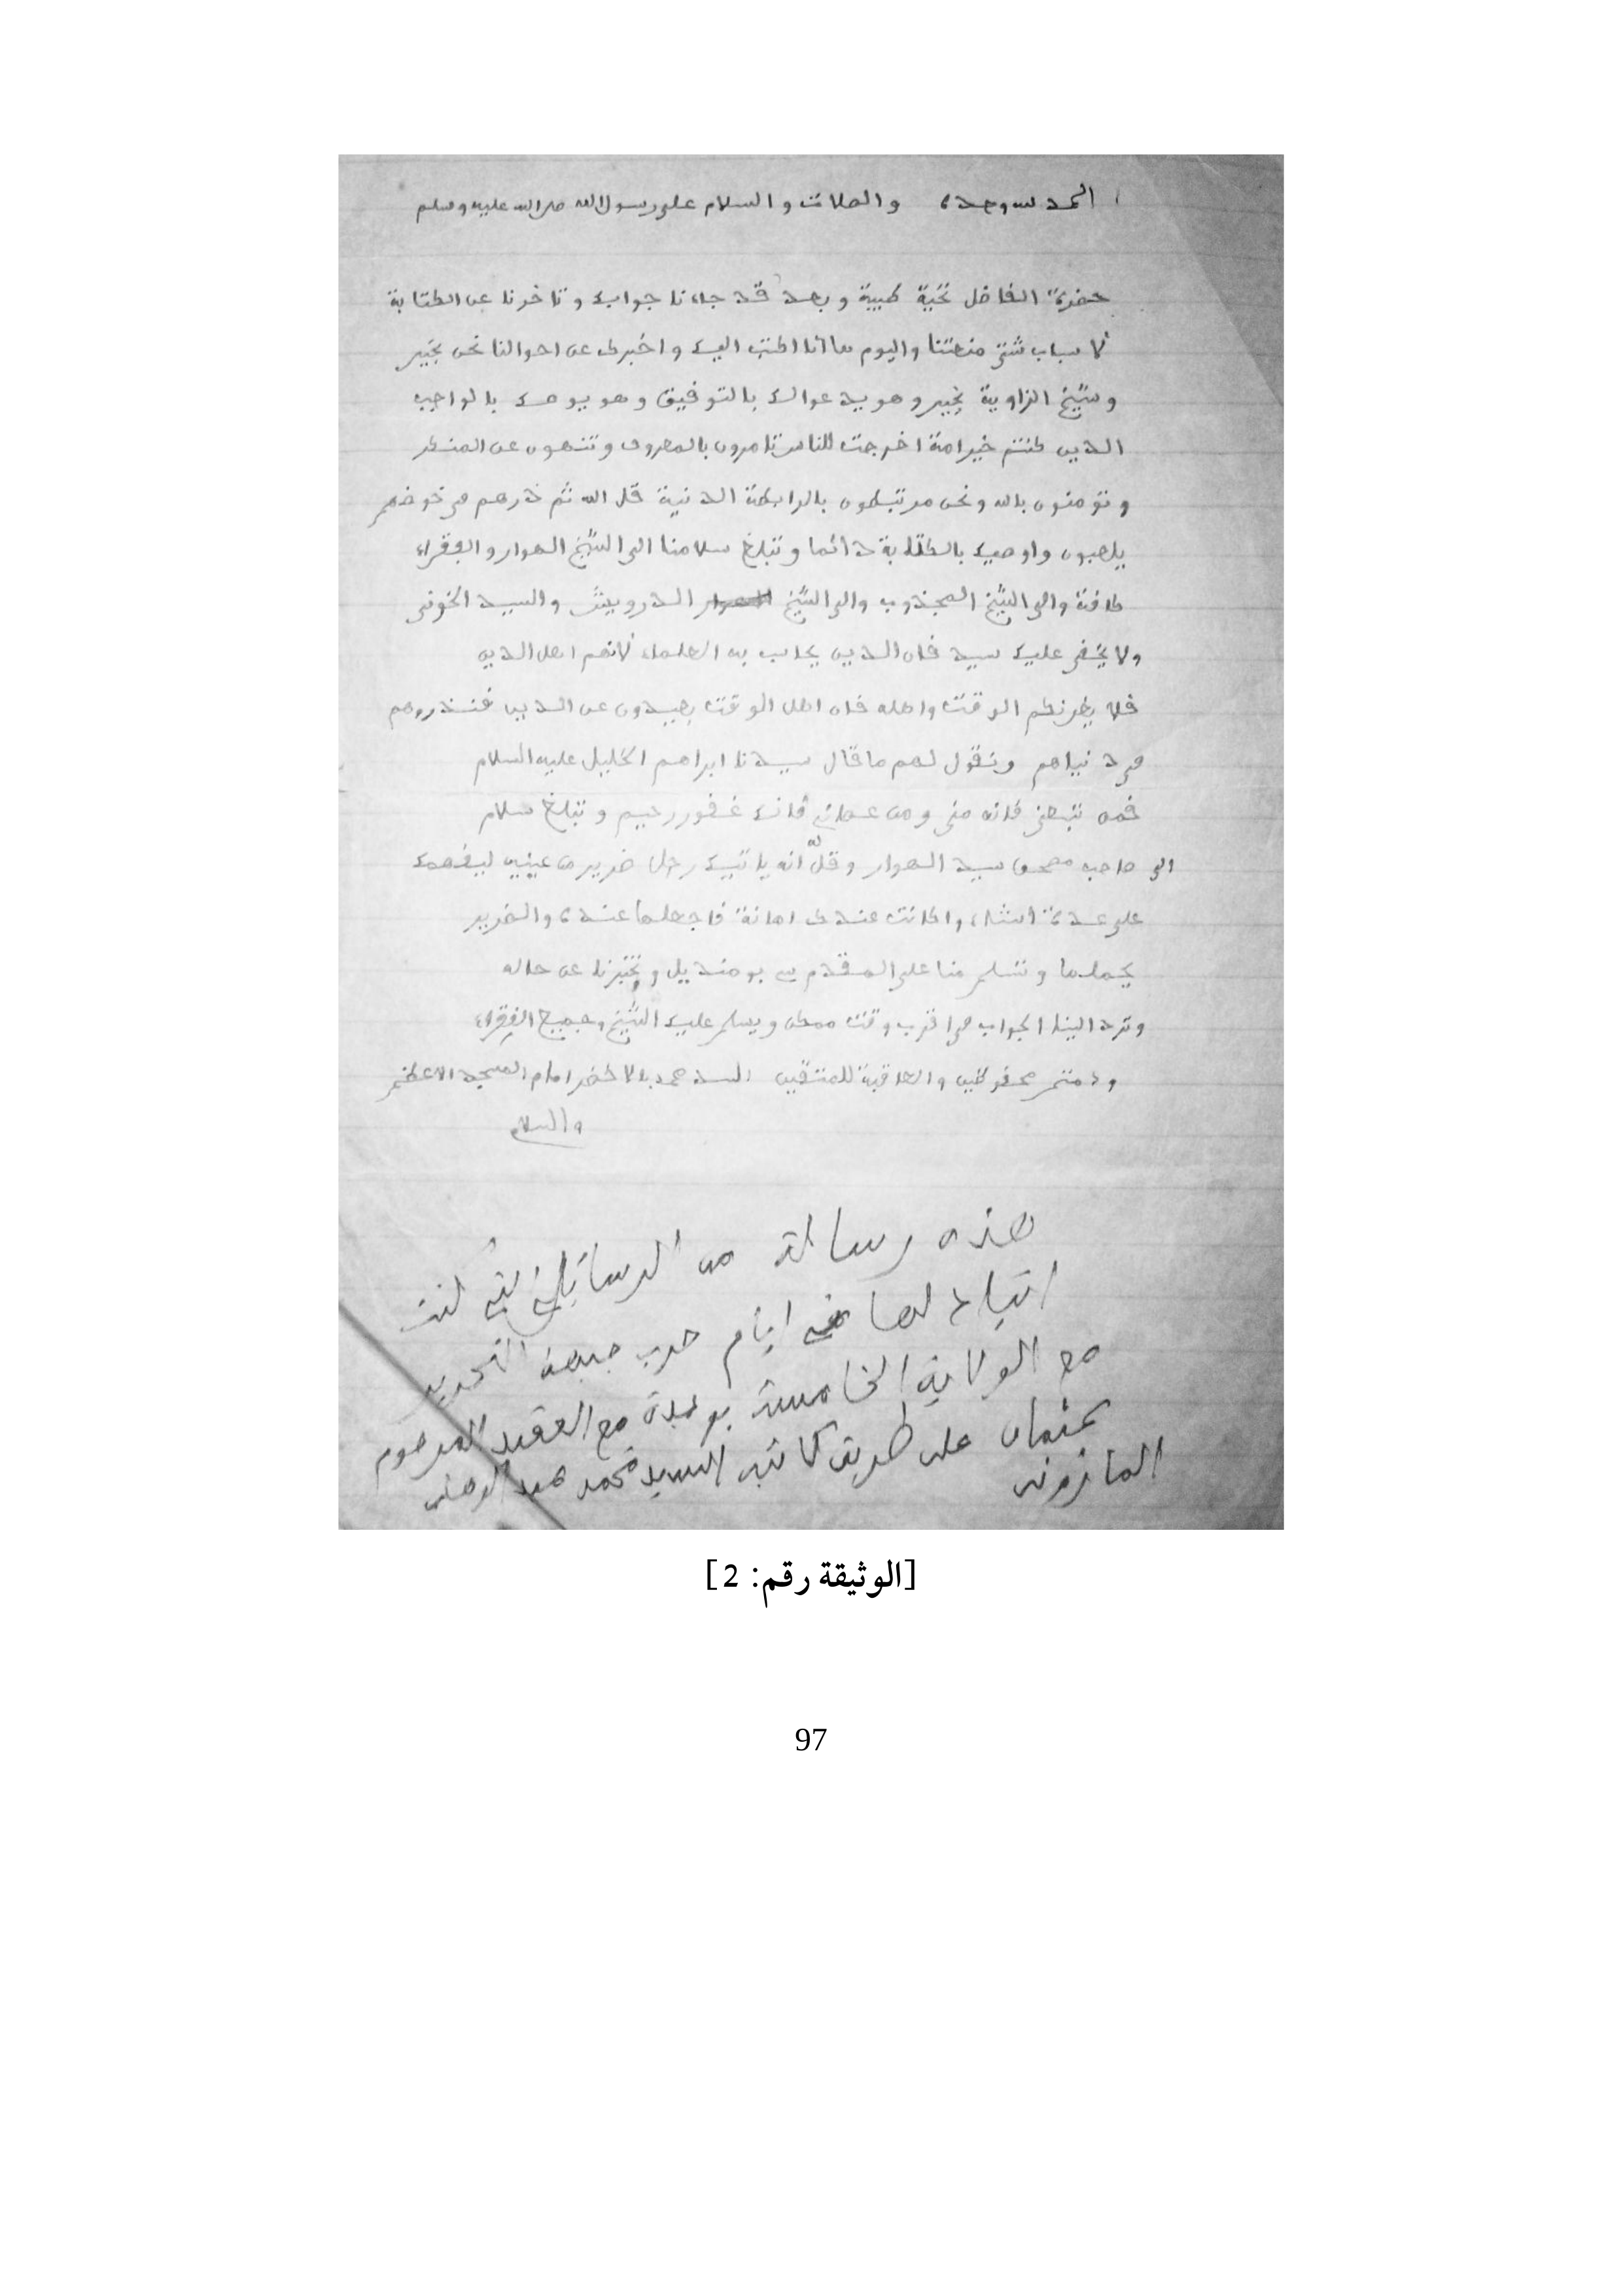 الحمد لله وحده والصلات والسلام على رسول الله صلى الله عليه وسلم
حضرة الفاضل تحية طيبة وبعد قد جاءنا جوابك وتاخرنا عن الكتابة
لأسباب شتى منعتنا واليوم ها انا اكتب اليك واخبرك عن احوالنا نحن بخير
وشيخ الزاوية بخير وهو يدعوا لك بالتوفيق وهو يوصك بالواجب
الدين كنتم خير امة اخرجت للناس تامرون بالمعروف وتنهون عن المنكر
وتومنون بالله ونحن مرتبطون بالرابطة الدنية قل الله ثم ذرهم في خوضهم
يلعبون واوصيك بالكتابة دائما وتبلغ سلامنا الى الشيخ الهوار والفقراء
كافة والى الشيخ المجذوب والى الشيخ الدرويش والسيد الخوني
ولا يخفى عليك سيد فان الدين يحاسب به العلماء لانهم اهل الدين
فلا يغرنكم الوقت واهله فان اهل الوقت بعيدون عن الدين فنذروهم
في دنياهم ونقول لهم ما قال سيدنا ابراهم الخليل عليه السلام
فمن تبعني فانه مني ومن عصاني فانك غفور رحيم وتبلغ سلام
الى صاحب سيد الهوار وقل له انه ياتيك رجل ضرير من عينيه
على عدة أشياء واكانت عندك امانة فاجعلها عنده والضرير
يحملها وتسلم منا على المقدم سي بومنديل وتخبرنا عن حاله
وترد الينا الجواب في اقرب وقت ممكن ويسلم عليك الشيخ وجميع الفقراء
ودمتم محفوظين والعاقبة للمتقين السد حمد بالاخضر امام المسجد الاعظم
والسلام
هذه رسالة من الرسائل التي كنت
اتبادلها في ايام حرب جبهة التحرير
مع الولاية الخامسة مع العقيد المرحوم
عثمان على طريق كاتبه السيد محمد عبد
المازوني
[الوثيقة رقم: 2]
97